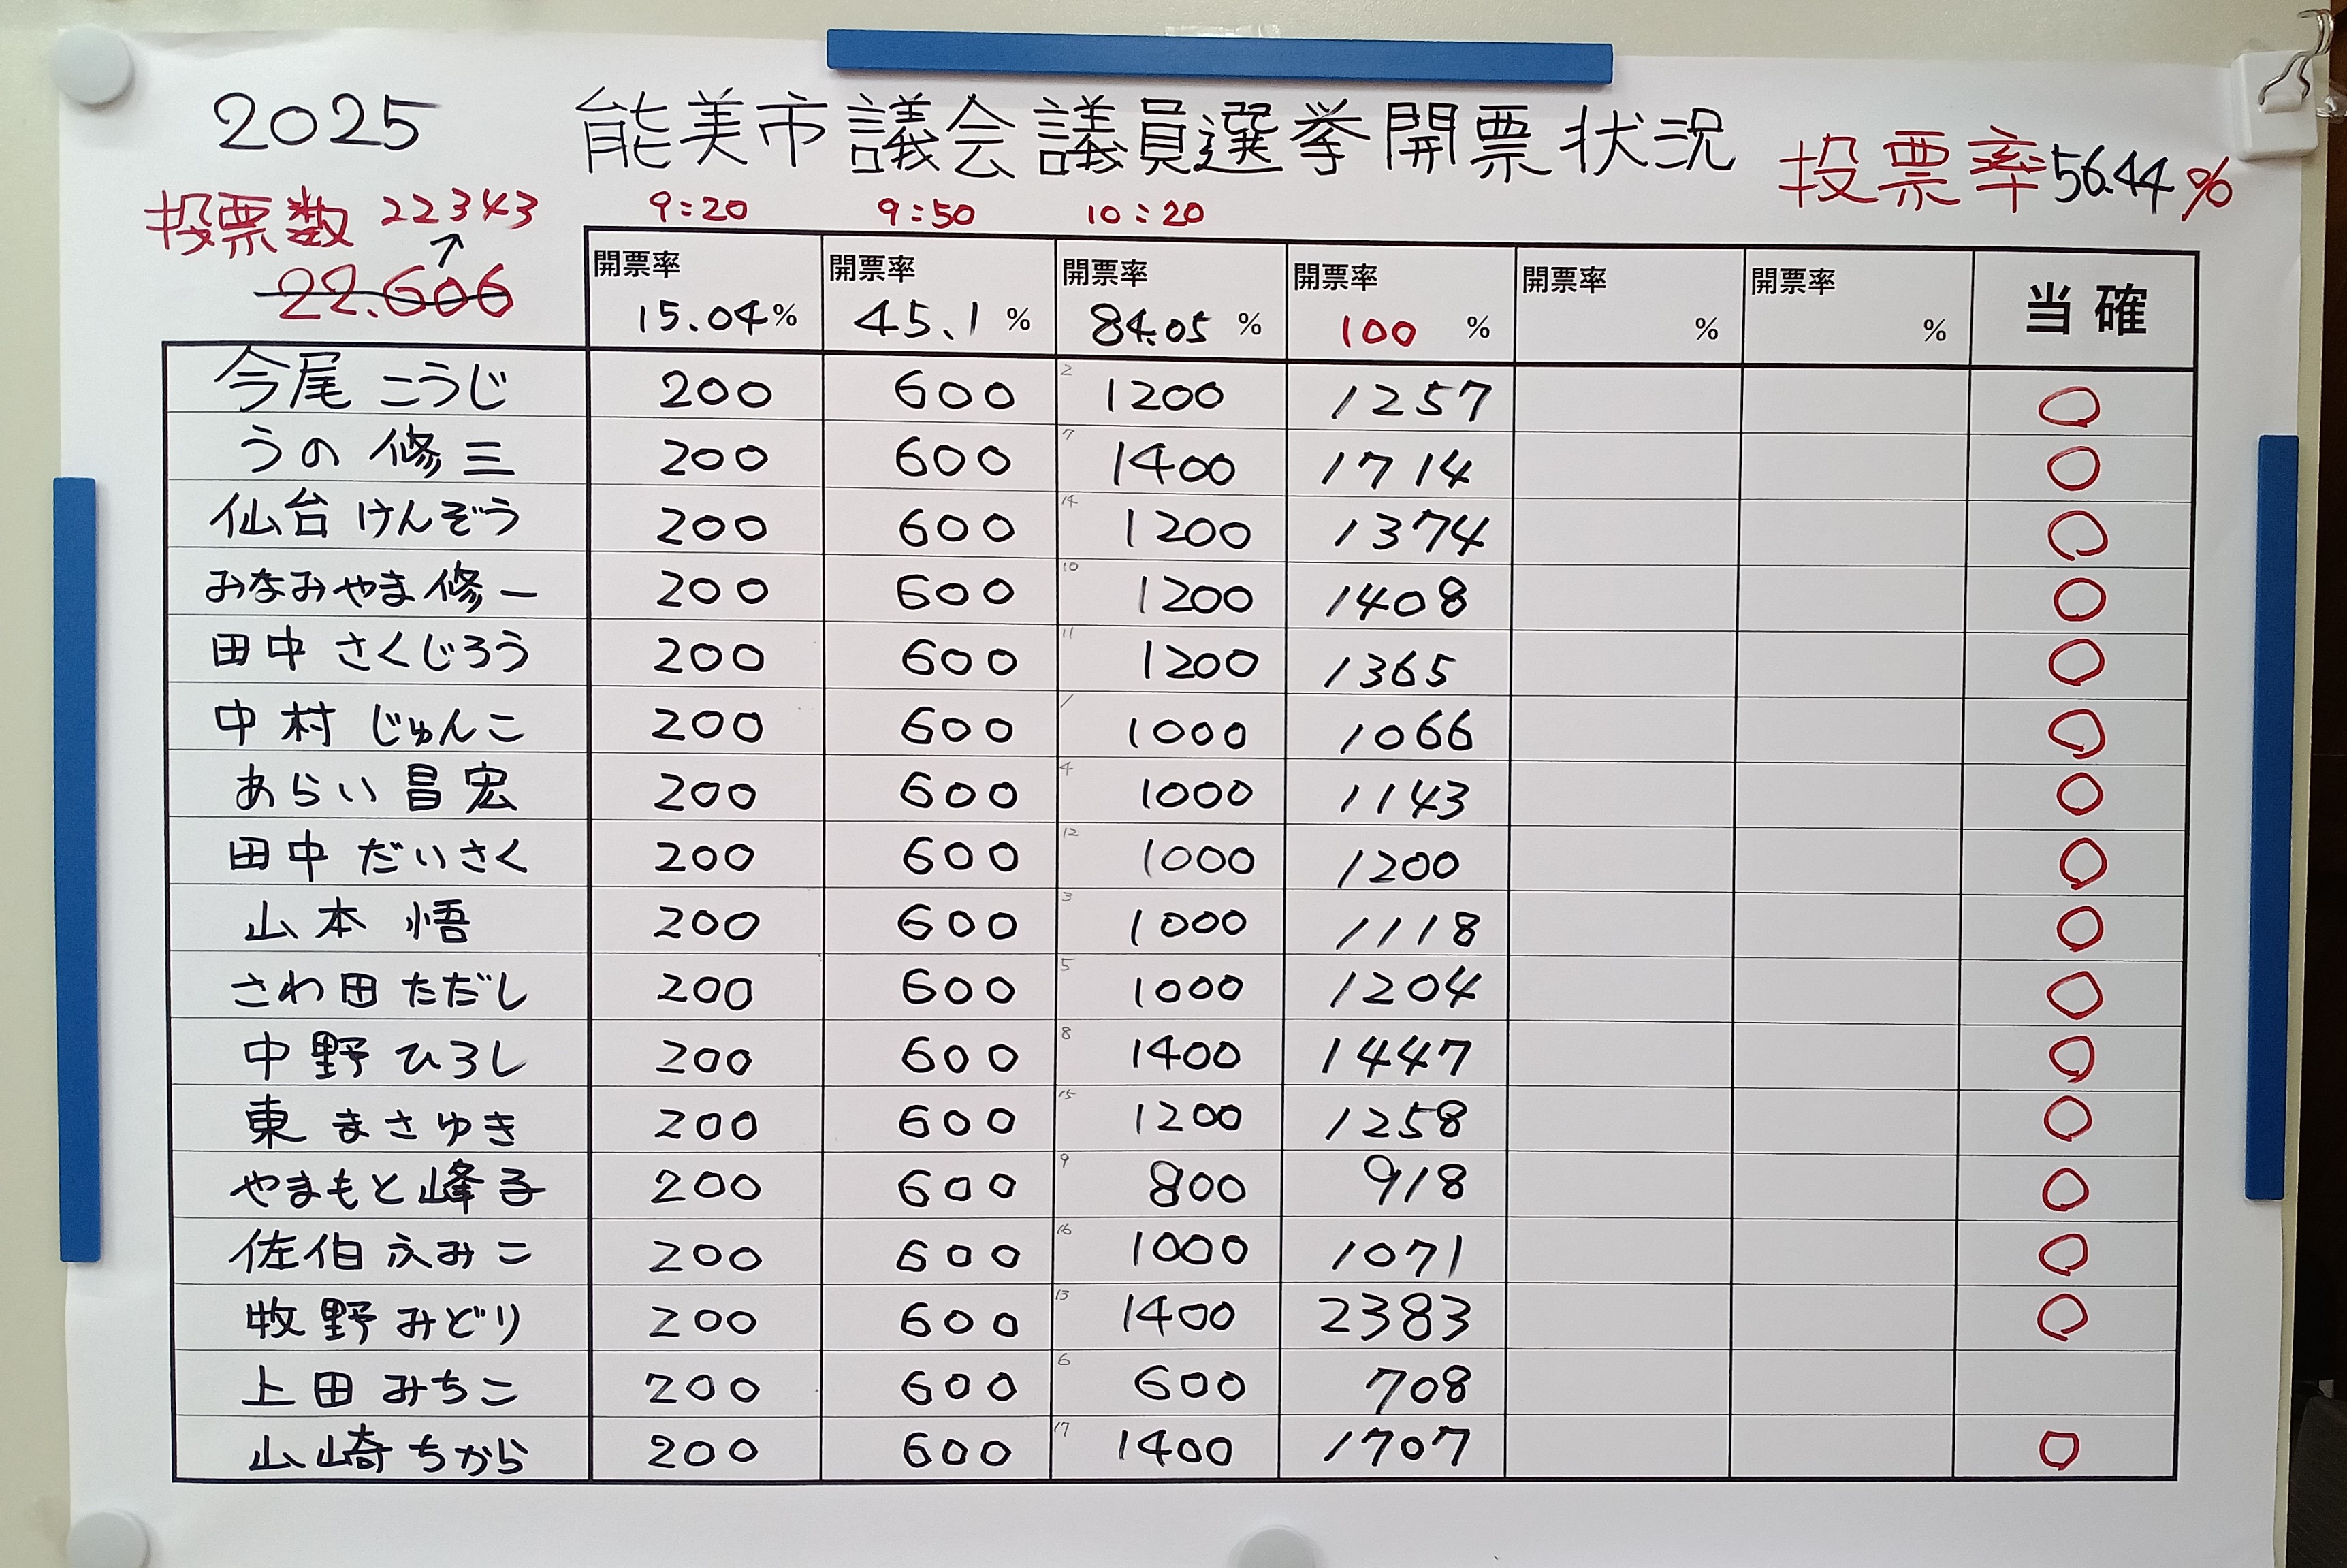 2025 能美市議会議員選挙開票状況 投票率56.44%
投票数 22343 9:20 9:50 10:20
↑
22.606
開票率 開票率 開票率 開票率 開票率 開票率 当確
15.04% 45.1% 84.05% 100% % %
今尾 こうじ 200 600 2 1200 1257 ○
うの 修三 200 600 7 1400 1714 ○
仙台 けんぞう 200 600 14 1200 1374 ○
みなみやま 修一 200 600 10 1200 1408 ○
田中 さくじろう 200 600 11 1200 1365 ○
中村 じゅんこ 200 600 1 1000 1066 ○
あらい 昌宏 200 600 4 1000 1143 ○
田中 だいさく 200 600 12 1000 1200 ○
山本 悟 200 600 3 1000 1118 ○
さわ田 ただし 200 600 5 1000 1204 ○
中野 ひろし 200 600 8 1400 1447 ○
東 まさゆき 200 600 15 1200 1258 ○
やまもと 峰子 200 600 9 800 918 ○
佐伯 ふみこ 200 600 16 1000 1071 ○
牧野 みどり 200 600 13 1400 2383 ○
上田 みちこ 200 600 6 600 708
山崎 ちから 200 600 17 1400 1707 ○